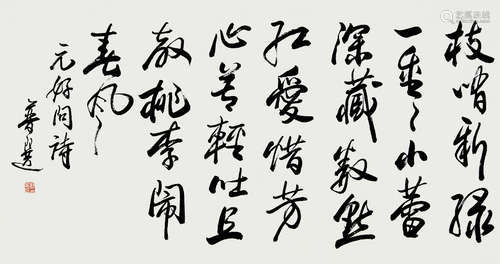 枝哨新绿
一重々小蕾
深藏数点
红愛惜芳
心莫輕吐且
教桃李闹
春风
元好问詩